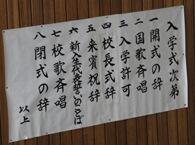 入学式次第
一開式の辞
二国歌斉唱
三入学許可
四校長式辞
五来賓祝辞
六新入生代表誓いのことば
七校歌斉唱
八閉式の辞
以上